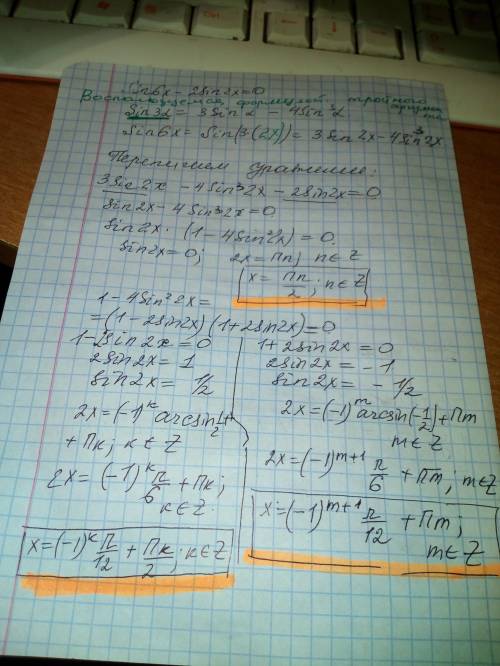 Sin6x - 2Sin2x=0
Воспользуемся формулой тройного аргумента
Sin3α = 3Sinα - 4Sin³α
Sin6x = Sin(3(2x)) = 3Sin2x - 4Sin³2x
Перепишем уравнение:
3Sin2x - 4Sin³2x - 2Sin2x = 0
Sin2x - 4Sin³2x = 0
Sin2x · (1 - 4Sin²2x) = 0
Sin2x = 0; 2x = Пn, n∈Z
x = Пn/2; n∈Z
1 - 4Sin²2x =
= (1 - 2Sin2x)(1 + 2Sin2x) = 0
1 - 2Sin2x = 0
2Sin2x = 1
Sin2x = 1/2
2x = (-1)^k arcsin 1/2 +
+ Пk; k∈Z
2x = (-1)^k П/6 + Пk;
k∈Z.
x = (-1)^k П/12 + Пk/2; k∈Z
1 + 2Sin2x = 0
2Sin2x = -1
Sin2x = -1/2
2x = (-1)^m arcsin(-1/2) + Пm
m∈Z
2x = (-1)^m+1 П/6 + Пm; m∈Z
x = (-1)^m+1 П/12 + Пm;
m∈Z